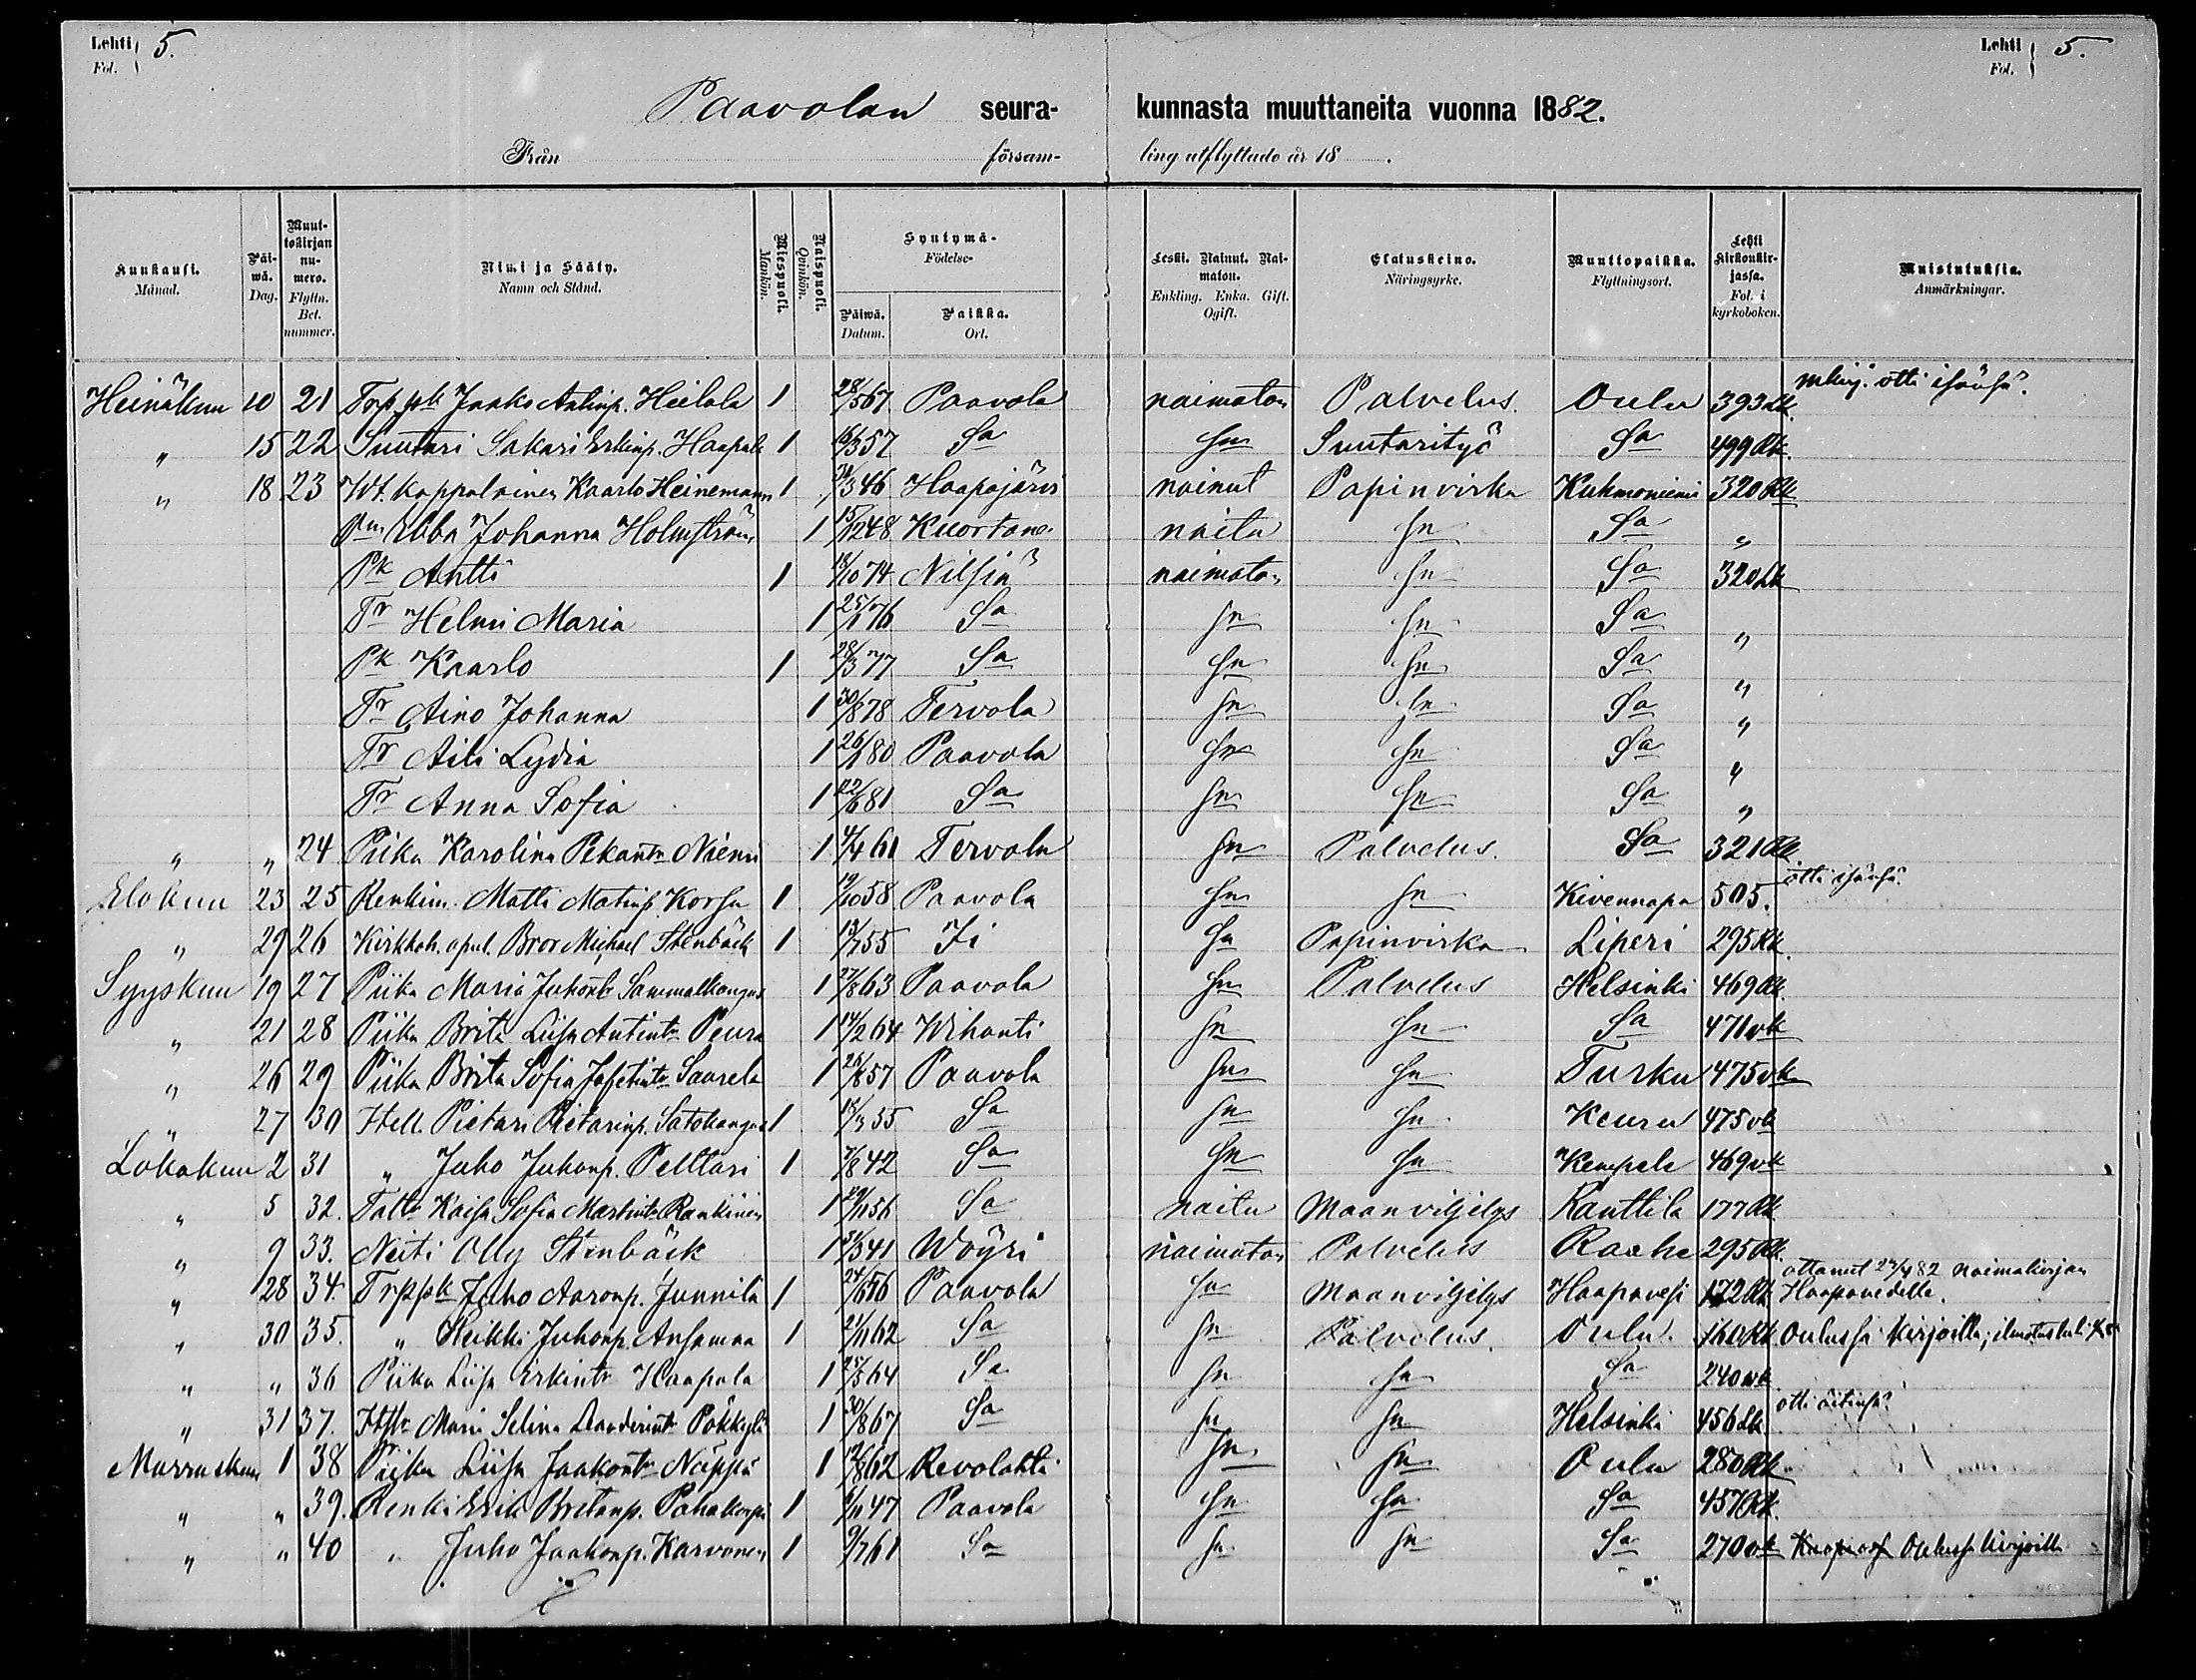 Lehti 5.
Fol.
Lehti 5.
Fol.
Paavolan seura-kunnasta muuttaneita vuonna 1882.
Från försam-ling utflyttade år 18 .
Kuukausi. Månad. Päiwä. Dag. Muuttokirjan numero. Flyttn. Bet. nummer. Nimi ja Sääty. Namn och Stånd. Miespuoli. Mankön. Naispuoli. Qvinkön. Syntymä- Födelse- Päiwä. Datum. Paikka. Ort. Leski. Nainut. Naimaton. Enkling. Enka. Gift. Ogift. Elatuskeino. Näringsyrke. Muuttopaikka. Flyttningsort. Lehti Kirkonkirjassa. Fol. i kyrkoboken. Muistutuksia. Anmärkningar.
Heinäkuu 10 21 Trp. pk Jaako Antinp. Heilala 1 28/5 67 Paavola naimaton Palvelus. Oulu 393 Lk. mkirj. otti isänsä.
" 15 22 Suutari Sakari Erkinp. Haapala 1 16/3 57 Sa Sn Suutarityö Sa 499 Rk.
" 18 23 Wt. kappalainen Kaarlo Heinemann 1 /3 46 Haapajärvi nainut Papinvirka Kuhmoniemi 320 Rk
Rm Ebba Johanna Holmström 1 15/12 48 Kuortane naitu Sn Sa "
Pk Antti 1 18/10 74 Nilsiä naimaton Sn Sa 320 Lk
Tr Helmi Maria 1 25/1 76 Sa Sn Sn Sa "
Pk Kaarlo 1 28/3 77 Sa Sn Sn Sa "
Tr Aino Johanna 1 30/8 78 Tervola Sn Sn Sa "
Tr Aili Lydia 1 26/1 80 Paavola Sn Sn Sa "
Tr Anna Sofia 1 22/6 81 Sa Sn Sn Sa "
" " 24 Piika Karolina Pekantr Niemi 1 4/4 61 Tervola Sn Palvelus. Sa 321 Rk
Elokuu 23 25 Renkim. Matti Matinp. Korhu 1 19/10 58 Paavola Sn Sn Kivennapa 505. otti isänsä.
" 29 26 Kirkkoh. apul. Bror Michael Stenbäck 1 13/7 55 Ii Sn Papinvirka Liperi 295 Rk.
Syyskuu 19 27 Piika Maria Juhontr Sammalkangas 1 27/8 63 Paavola Sn Palvelus Helsinki 469 Rk.
" 21 28 Piika Brita Liisa Antintr Peura 1 14/2 64 Wihanti Sn Sn Sa 471 vk
" 26 29 Piika Brita Sofia Jafetintr Saarela 1 26/8 57 Paavola Sn Sn Turku 475 vk
" 27 30 Itell. Pietari Pietarinp. Satokangas 1 18/3 55 Sa Sn Sn Keuru 475 vk
Lokakuu 2 31 " Juho Juhonp. Pelttari 1 7/8 42 Sa Sn Sn Kempele 469 vk
" 5 32. Taltr Kaisa Sofia Martintr Rankinen 1 29/11 56 Sa naitu Maanviljelys Rauttila 177 Rk
" 9 33. Neiti Olly Stenbäck 1 24/3 41 Wöyri naimaton Palvelus Raahe 295 Rk.
" 28 34. Trppk Juho Aaronp. Junnila 1 24/6 Paavola Sn Maanviljelys Haapavesi 172 Rk. ottanut 82 naimakirjan Haapavedelle.
" 30 35. " Heikki Juhonp. Ansamaa 1 21/11 62 Sa Sn Palvelus. Oulu. 160 Rk Oulussa kirjoilla; ilmotus tuli
" " 36 Piika Liisa Erkintr Haapala 1 25/5 64 Sa Sn Sn Sa 240 vk
" 31 37. Maria Selina Leanderintr Pökkylä 1 30/8 67 Sa Sn Sn Helsinki 456 Lk. otti äitinsä.
Marraskuu 1 38 Piika Liisa Jaakontr Näppä 1 12/8 62 Revolahti Sn Sn Oulu 280 Rk
" " 39. Renki Erik Pretanp. Pahakorpi 1 /11 47 Paavola Sn Sn Sa 457 Rk.
" " 40 " Juho Jaakonp. Karvonen 1 9/7 61 Sa Sn Sn Sa 270 vk Oulussa kirjoilla